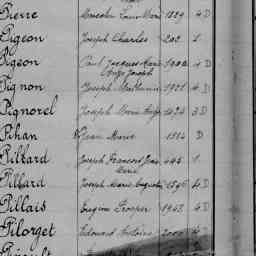 Pierre Marie 1829 4 D
Pigeon Joseph Charles 202 1
Pigeon Paul Jacques Marie 1002 4 D
Ange Joseph
Pignon Joseph Mathurin 1921 4 D
Pignorel Joseph Marie Ange 1424 3 D
Pihan Jean Marie 1554 D
Pillard Joseph François Jean 445 1
Marie
Pillard Joseph Marie Auguste 1596 4 D
Pillais Eugène Prosper 1943 4 D
Pilorget Edouard Antoine 2000 4 D